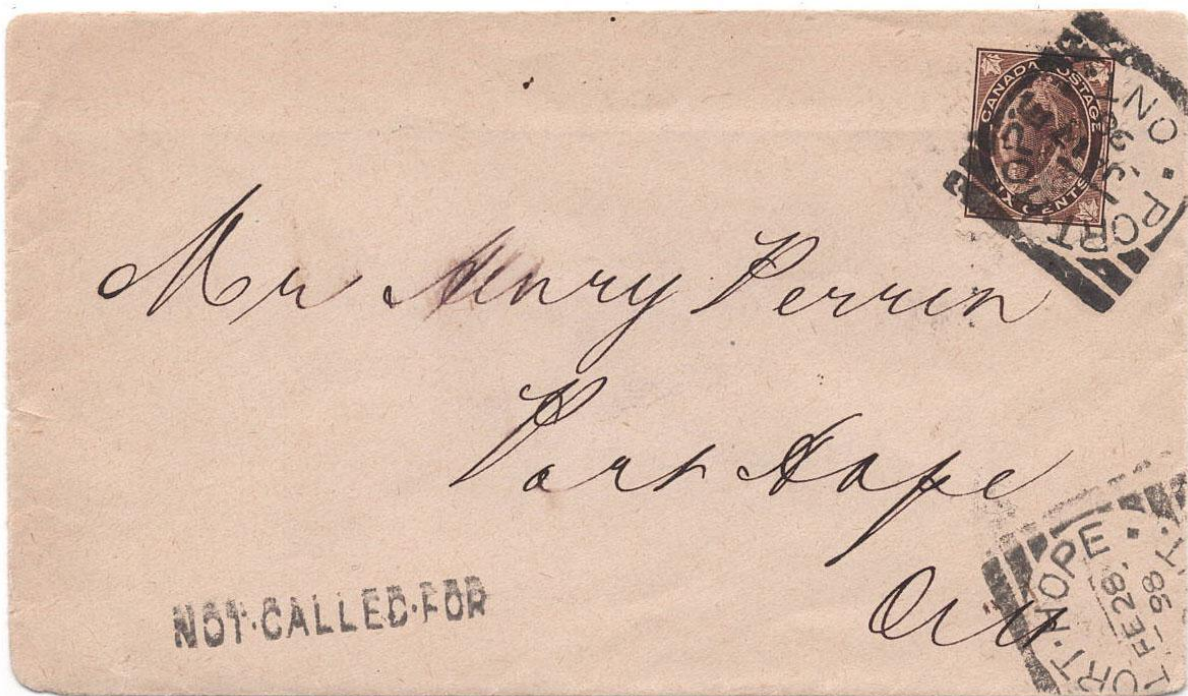 CANADA POSTAGE
SIX CENTS
PORT·HOPE
ONT
Mr Henry Perrin
Port Hope
Ont
NOT·CALLED·FOR
PORT·HOPE
FE 28
98